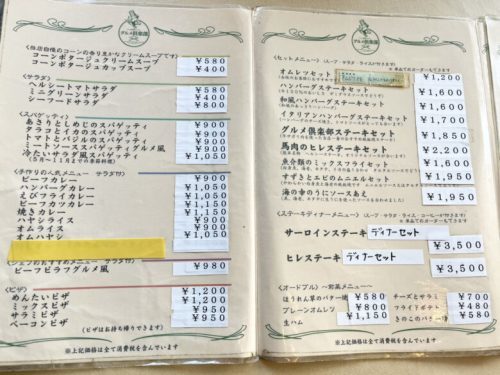 グルメ倶楽部
〈当店自慢のコーンの香り豊かなクリームスープです〉
コーンポタージュクリームスープ ¥580
コーンポタージュカップスープ ¥400
〈サラダ〉
ヘルシートマトサラダ ¥580
ミニグリーンサラダ ¥400
シーフードサラダ ¥800
〈スパゲッティ〉
あさりとしめじのスパゲッティ
タラコとイカのスパゲッティ
トマトとバジルのスパゲッティ
ミートソーススパゲッティグルメ風
冷たいサラダ風スパゲッティ ¥1,050
(5月~11月までの季節料理)
〈手作りの人気メニュー サラダ付〉
ビーフカレー ¥900
ハンバーグカレー
えびフライカレー
ビーフカツカレー
焼きカレー
ハヤシライス
オムライス
オムハヤシ ¥1,050
シェフのおすすめメニュー サラダ付
ビーフピラフグルメ風 ¥980
〈ピザ〉
めんたいピザ ¥1,200
ミックスピザ ¥1,200
サラミピザ ¥950
ベーコンピザ ¥950
(ピザはお持ち帰りできます)
※上記価格は全て消費税を含んでいます
グルメ倶楽部
〈セットメニュー〉(スープ・サラダ・ライス付きます)
※単品でのオーダーもできます
オムレツセット ¥1,200
ハンバーグステーキセット ¥1,600
和風ハンバーグステーキセット ¥1,600
イタリアンハンバーグステーキセット ¥1,700
グルメ倶楽部ステーキセット ¥1,850
馬肉のヒレステーキセット ¥2,200
魚介類のミックスフライセット ¥1,600
すずきとエビのムニエルセット
海の幸のうにソースあえ ¥1,950
〈ステーキディナーメニュー〉(スープ・サラダ・ライス・コーヒーが付きます)
※単品でのオーダーもできます
サーロインステーキ ディナーセット ¥3,500
ヒレステーキ ディナーセット ¥3,500
〈オードブル〉~前菜メニュー~
ほうれん草のバター焼 ¥580 チーズとサラミ ¥700
プレーンオムレツ ¥800 フライドポテト ¥480
生ハム ¥1,150 きのこのバター焼 ¥580
※上記価格は全て消費税を含んでいます